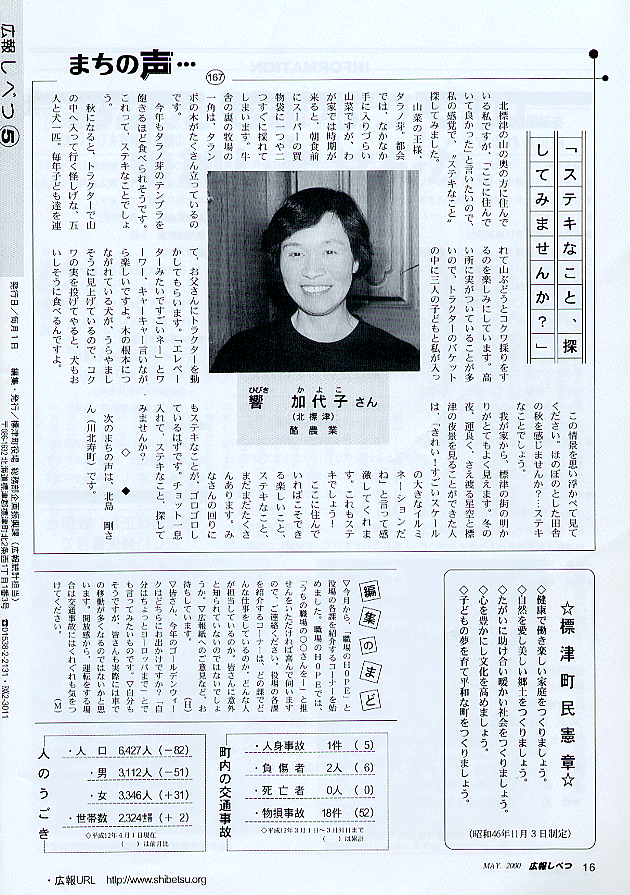 まちの声…
167
「ステキなこと、探
してみませんか？」
北標津の山の奥の方に住んで
いる私ですが、「ここに住んで
いて良かった」と言いたいので、
私の感覚で、〝ステキなこと〟
探してみました。
山菜の王様、
タラノ芽。都会
では、なかなか
手に入りづらい
山菜ですが、わ
が家では時期が
来ると、朝食前
にスーパーの買
物袋に一つや二
つすぐに採れて
しまいます。牛
舎の裏の牧場の
一角は、タラン
ボの木がたくさん立っているの
です。
今年もタラノ芽のテンプラを
飽きるほど食べられそうです。
これって、ステキなことでしょ
う。
秋になると、トラクターで山
の中へ入って行く怪しげな、五
人と犬一匹。毎年子ども達を連
れて山ぶどうとコクワ採りをす
るのを楽しみにしています。高
い所に実がついていることが多
いので、トラクターのバケット
の中に三人の子どもと私が入っ
て、お父さんにトラクターを動
かしてもらいます。「エレベー
ターみたいですごいネー」とワ
ーワー、キャーキャー言いなが
ら楽しいですよ。木の根本につ
ながれている犬が、うらやまし
そうに見上げているので、コク
ワの実を投げてやると、犬もお
いしそうに食べるんですよ。
ひびき かよこ
響 加代子さん
（北標津）
酪農業
この情景を思い浮かべて見て
ください。ほのぼのとした田舎
の秋を感じませんか？…ステキ
なことでしょう。
我が家から、標津の街の明か
りがとてもよく見えます。冬の
夜、運良く、さえ渡る星空と標
津の夜景を見ることができた人
は、「きれい！すごいスケール
の大きなイルミ
ネーションだ
ね」と言って感
激してくれま
す。これもステ
キでしょう！
ここに住んで
いればこそでき
る楽しいこと、
ステキなこと、
まだまだたくさ
んあります。み
なさんの回りに
もステキなことが、ゴロゴロし
ているはずです。チョット一息
入れて、ステキなこと、探して
みませんか？
◇ ◆
次のまちの声は、北島 剛さ
ん（川北寿町）です。
☆標津町民憲章☆
◇健康で働き楽しい家庭をつくりましょう。
◇自然を愛し美しい郷土をつくりましょう。
◇たがいに助け合い暖かい社会をつくりましょう。
◇心を豊かにし文化を高めましょう。
◇子どもの夢を育て平和な町をつくりましょう。
（昭和46年11月3日制定）
編集のまど
▽今月から、「職場のＨＯＰＥ」と
役場の各課を紹介するコーナーを始
めました。職場のＨＯＰＥでは、
「うちの職場の〇〇さんを！」と推
せんをいただければ喜んで伺います
ので、ご連絡ください。役場の各課
を紹介するコーナーは、どの課でど
んな仕事をしているのか、どんな人
が担当しているのか、皆さんに意外
と知られていないのではないでしょ
うか。▽広報紙へのご意見など、お
待ちしています。 （Ｈ）
▽皆さん、今年のゴールデンウィー
クはどちらにお出かけですか？「自
分はちょっとヨーロッパまで」とで
も言ってみたいものです。▽自分も
そうですが、皆さんも実際には車で
の移動が多くなるのではないかと思
います。開放感から、運転をする場
合は交通事故にはくれぐれも気をつ
けてください。 （Ｍ）
町内の交通事故
・人身事故 1件 （ 5）
・負傷者 2人 （ 6）
・死亡者 0人 （ 0）
・物損事故 18件 （52）
◇平成12年3月1日〜3月31日まで
（ ）は累計
人のうごき
・人口 6,427人（−82）
・男 3,112人（−51）
・女 3,346人（+31）
・世帯数 2,324世帯（+ 2）
◇平成12年4月1日現在
（ ）は前月比
・広報URL http://www.shibetsu.org
MAY. 2000 広報しべつ 16
広報しべつ⑤
発行日／毎月1日 編集・発行／標津町役場 総務部企画振興課（広報統計担当）
〒086-1632 北海道標津郡標津町北2条西1丁目1番3号 ☎01538-2-2131・FAX2-3011